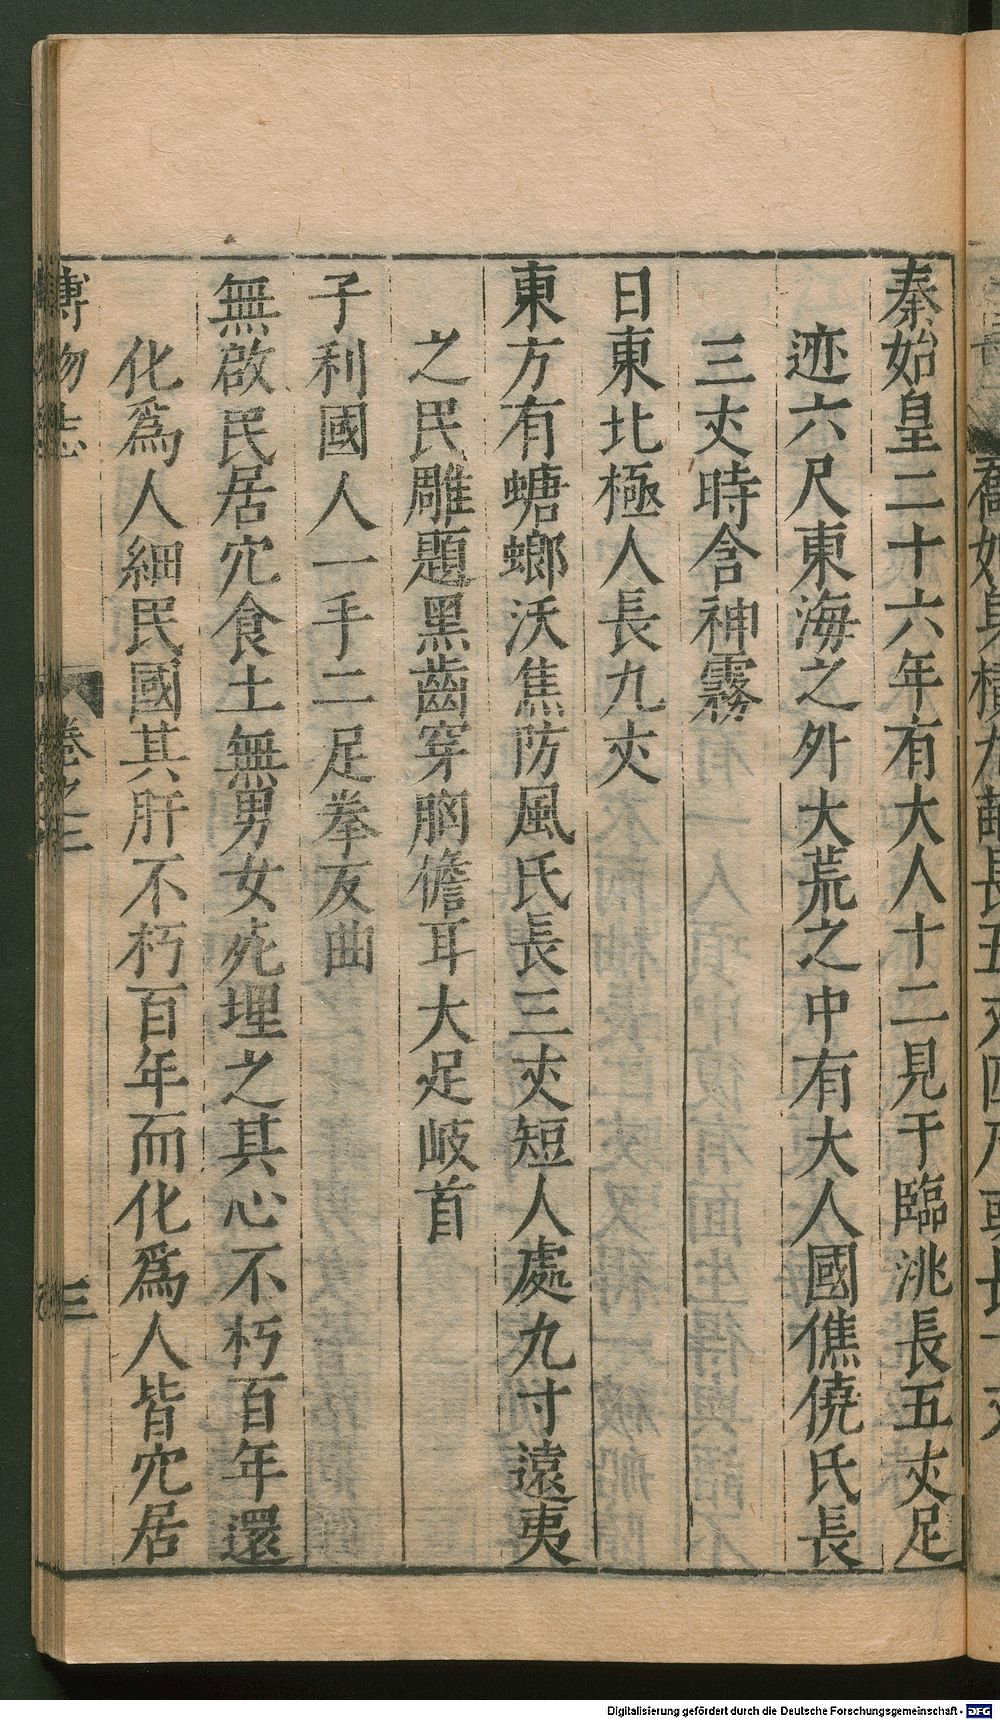 秦始皇二十六年有大人十二見于臨洮長五𠀋足
迹六尺東海之外大荒之中有大人國僬僥氏長
三𠀋時含神霧
日東北極人長九𠀋
東方有螗螂沃焦防風氏長三𠀋短人處九寸遠夷
之民雕題黑齒穿胸儋耳大足岐首
子利國人一手二足拳反曲
無啟民居穴食土無男女死埋之其心不朽百年還
化爲人細民國其肝不朽百年而化爲人皆穴居
博物志 卷之二 三
Digitalisierung gefördert durch die Deutsche Forschungsgemeinschaft - DFG